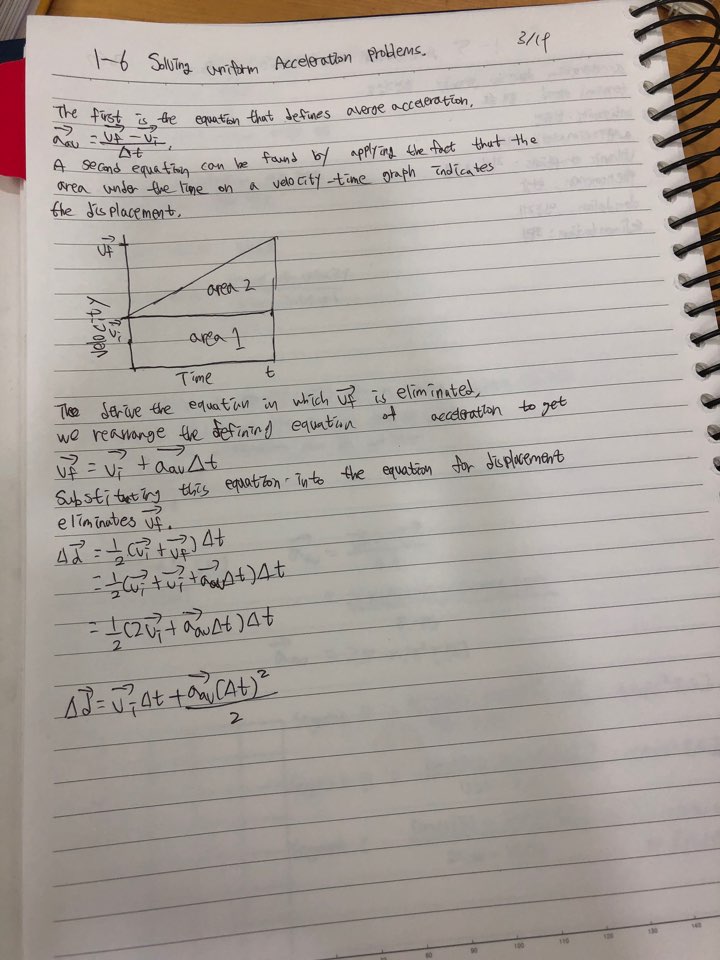 1-6 Solving uniform Acceleration problems. 3/19
The first is the equation that defines averge acceleration.
a⃗av = (v⃗f - v⃗i)/Δt.
A second equation can be found by applying the fact that the
area under the line on a velocity-time graph indicates
the displacement.
v⃗f
area 2
velocity
v⃗i
area 1
Time t
derive the equation in which v⃗f is eliminated,
we rearrange the defining equation of acceleration to get
v⃗f = v⃗i + a⃗avΔt
Substituting this equation into the equation for displacement
eliminates v⃗f.
Δd⃗ = 1/2(v⃗i + v⃗f)Δt
= 1/2(v⃗i + v⃗i + a⃗avΔt)Δt
= 1/2(2v⃗i + a⃗avΔt)Δt
Δd⃗ = v⃗iΔt + a⃗av(Δt)²/2
80 90 100 110 120 130 140